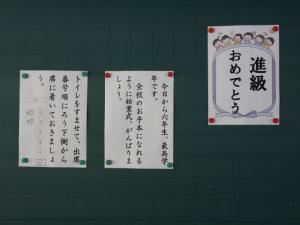 進級
おめでとう
今日から六年生、最高学
年です。
全校のお手本になれる
ように始業式、がんばりま
しょう。
トイレをすませて、出席
番号順にろう下側から
席に着いておきましょ
う。